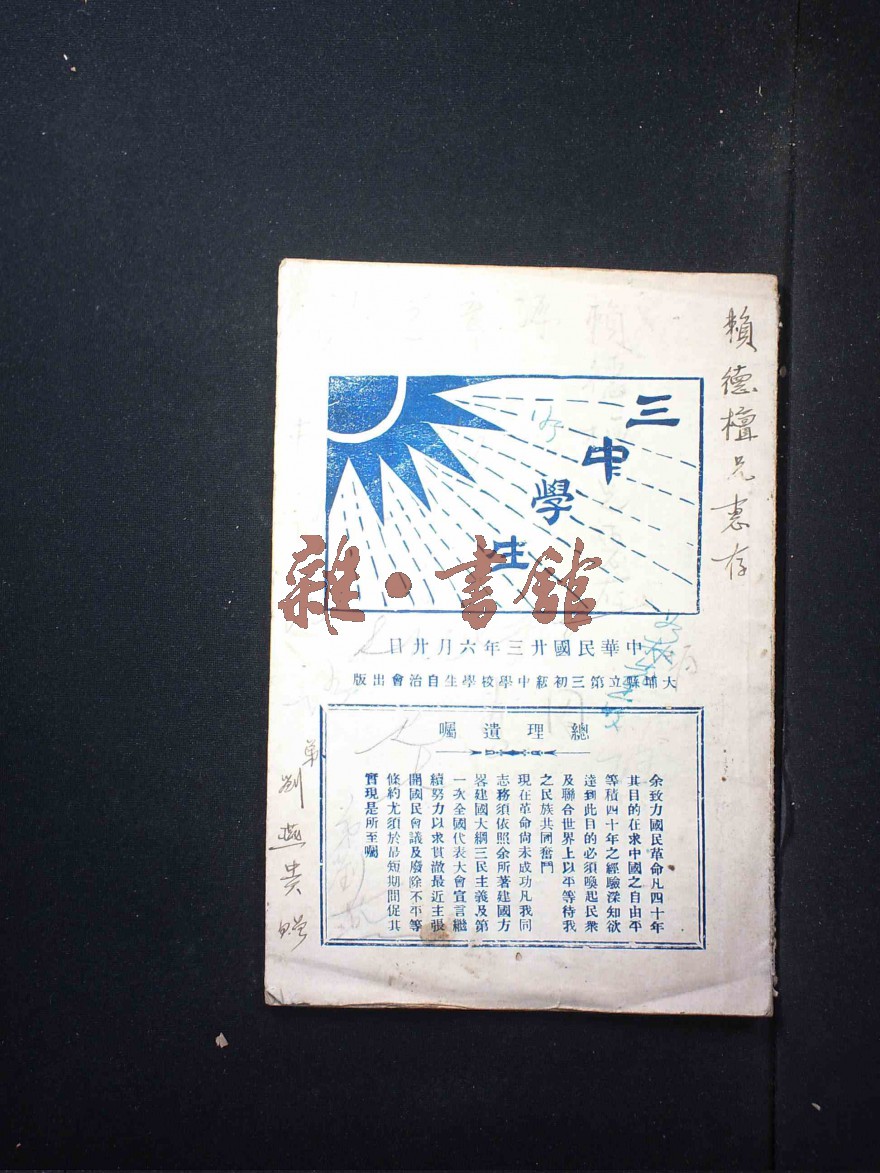 賴德檀兄惠存
三中學生
雜·書館
中華民國卅三年六月卅日
大埔縣立第三初級中學校學生自治會出版
總理遺囑
余致力國民革命凡四十年
其目的在求中國之自由平
等積四十年之經驗深知欲
達到此目的必須喚起民衆
及聯合世界上以平等待我
之民族共同奮鬥
現在革命尚未成功凡我同
志務須依照余所著建國方
畧建國大綱三民主義及第
一次全國代表大會宣言繼
續努力以求貫澈最近主張
開國民會議及廢除不平等
條約尤須於最短期間促其
實現是所至囑
弟劉燕貴贈